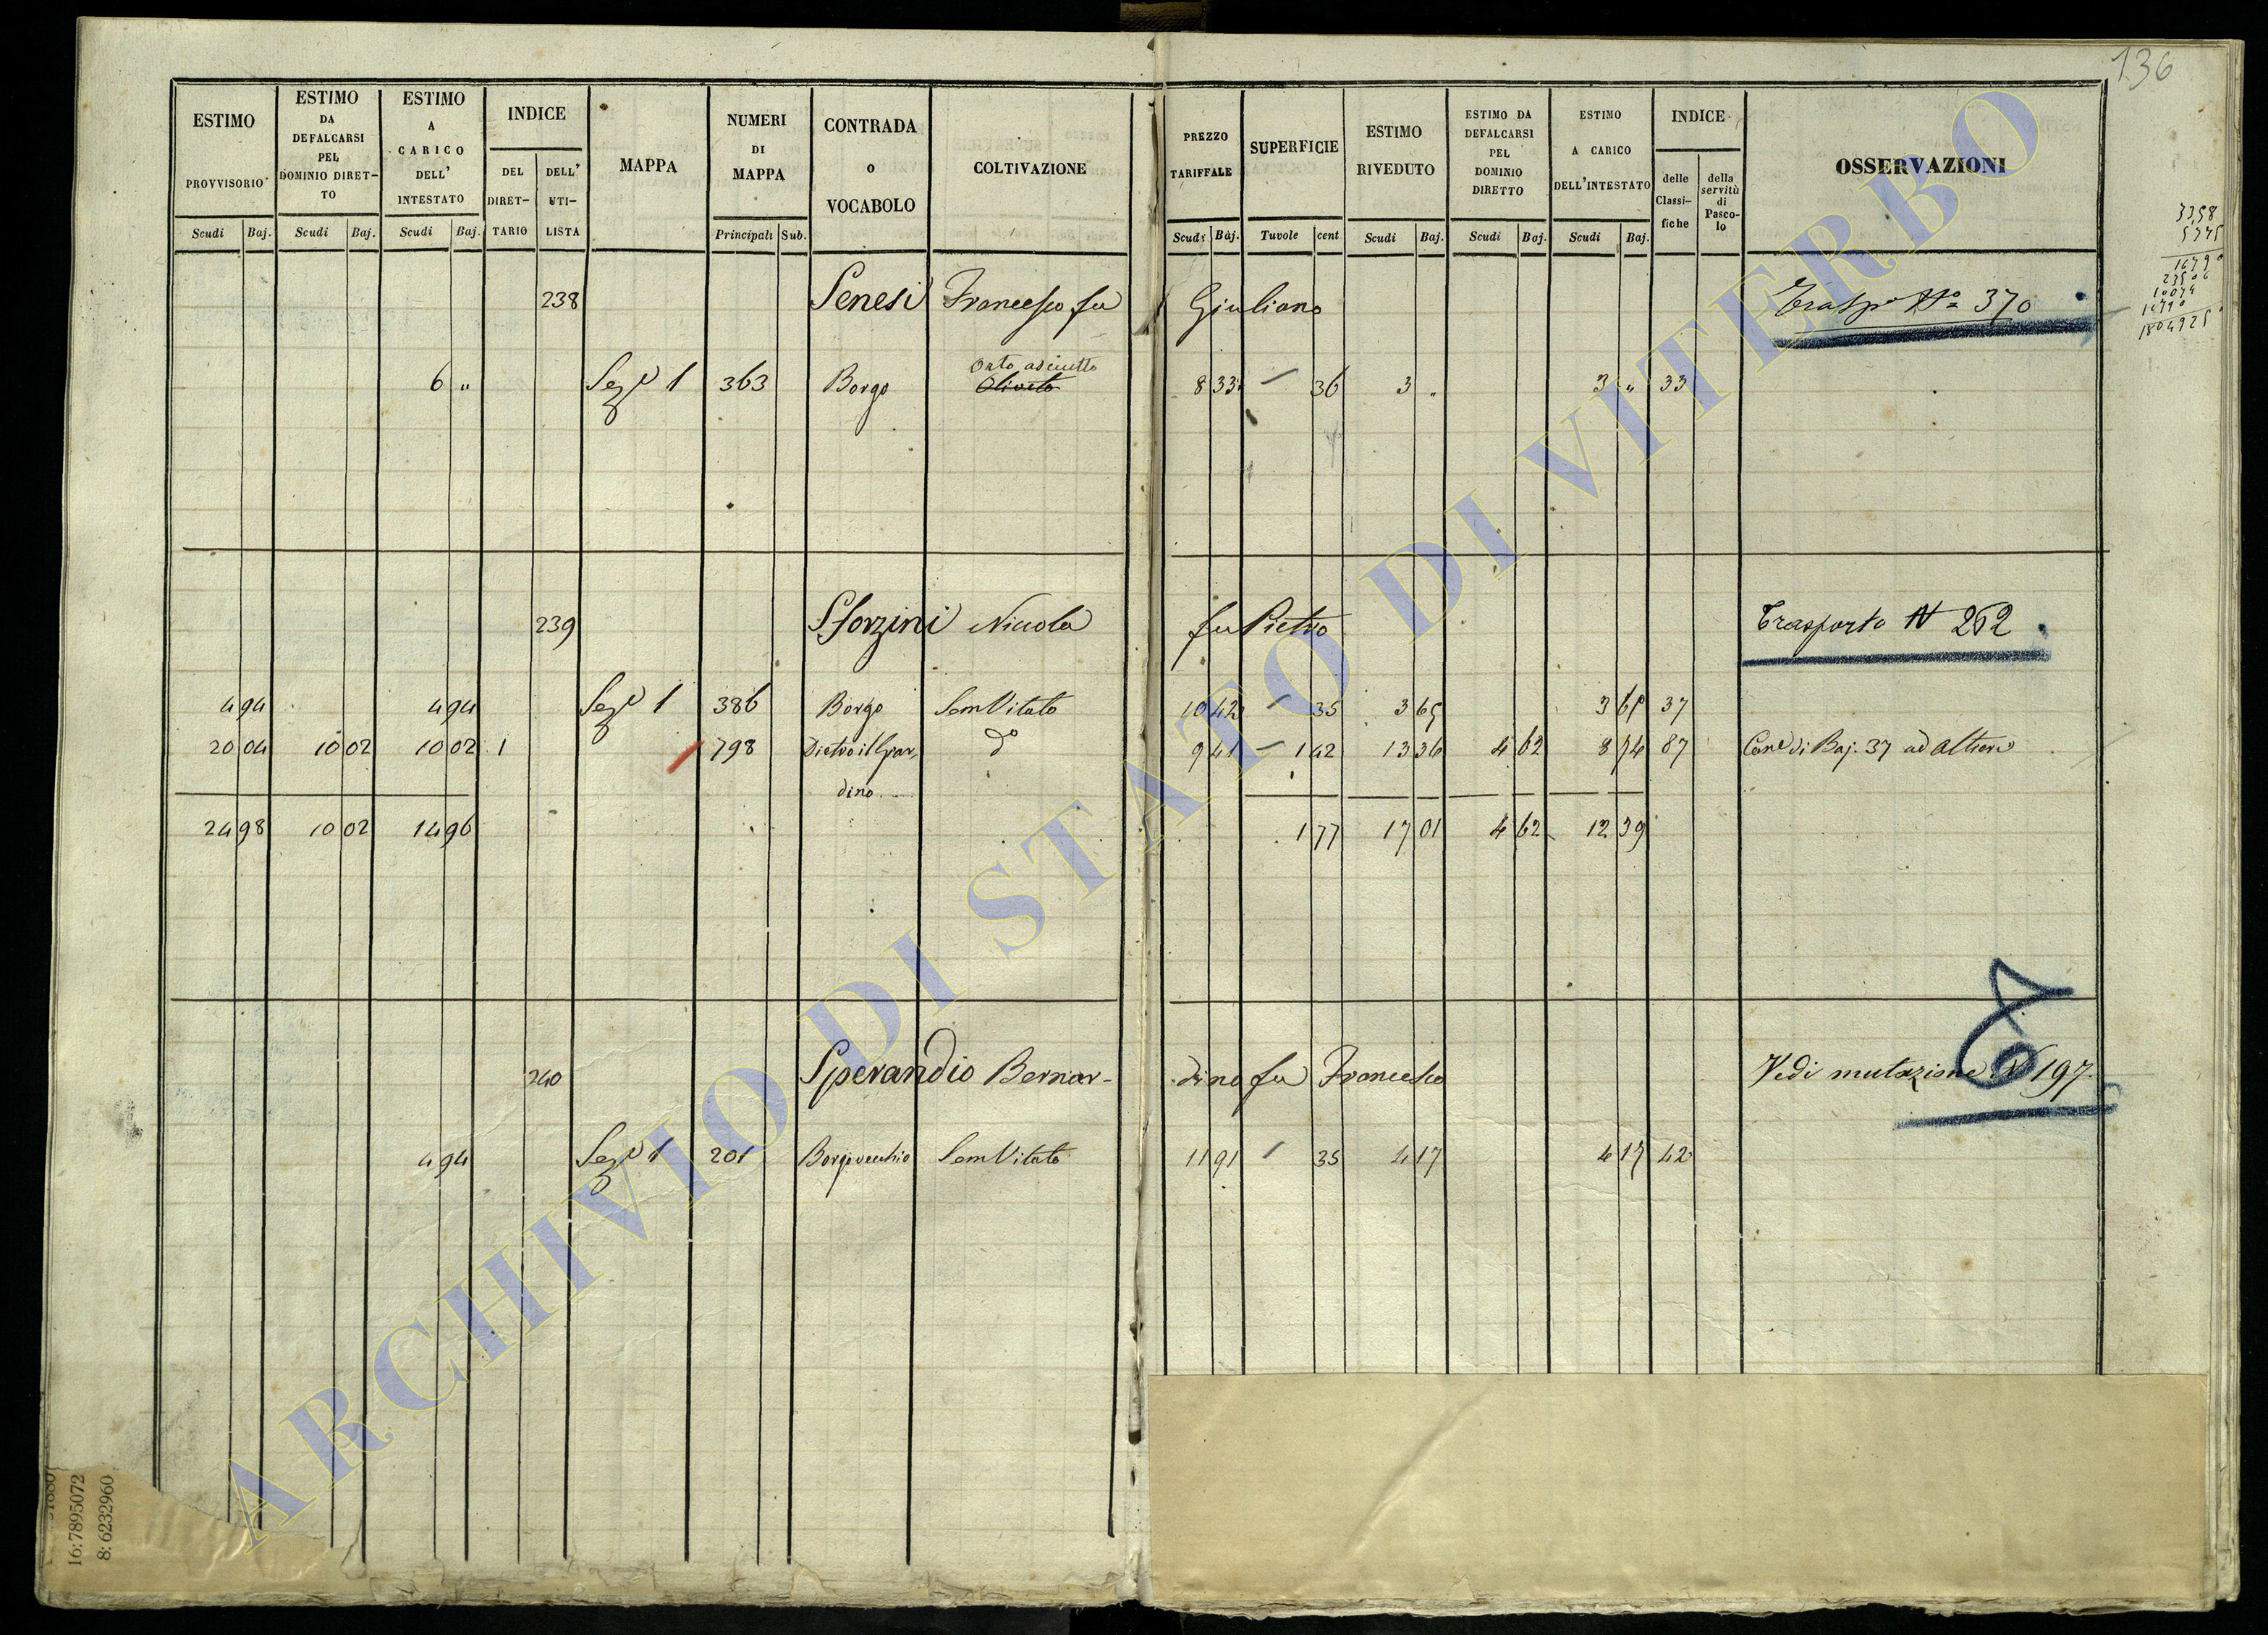 136
ESTIMO PROVVISORIO Scudi Baj.
ESTIMO DA DEFALCARSI PEL DOMINIO DIRET- TO Scudi Baj.
ESTIMO A CARICO DELL' INTESTATO Scudi Baj.
INDICE DEL DIRET- TARIO DELL' UTI- LISTA
MAPPA
NUMERI DI MAPPA Principali Sub.
CONTRADA o VOCABOLO
COLTIVAZIONE
PREZZO TARIFFALE Scudi Baj.
SUPERFICIE Tavole cent
ESTIMO RIVEDUTO Scudi Baj.
ESTIMO DA DEFALCARSI PEL DOMINIO DIRETTO Scudi Baj.
ESTIMO A CARICO DELL'INTESTATO Scudi Baj.
INDICE delle Classi- fiche della servitù di Pasco- lo
OSSERVAZIONI
238 Senesi Francesco fu Giuliano Trasp.o N.o 370
Orto asciutto
6 " Sez.e 1 363 Borgo Oliveto 8 33 36 3 " 3 " 33
239 Sforzini Nicola fu Pietro Trasporto N 262
4 94 4 94 Sez.e 1 386 Borgo SemVitato 10 42 35 3 65 3 65 37
20 04 10 02 10 02 1 798 Dietro il Giar- d.o 9 41 1 42 13 36 4 62 8 74 87 Cane di Baj. 37 ad Altieri
dino
24 98 10 02 14 96 1 77 17 01 4 62 12 39
240 Sperandio Bernar- dino fu Francesco Vedi mutazione N 197
4 94 Sez.e 1 201 Borgovecchio SemVitato 11 91 35 4 17 4 17 42
16:7895072
8:6232960
ARCHIVIO DI STATO DI VITERBO